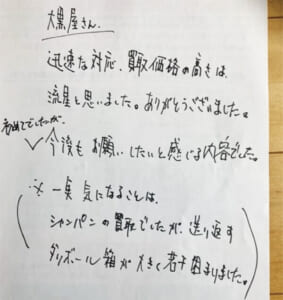 大黒屋さん。
迅速な対応、買取価格の高さは、
流星と思いました。ありがとうございました。
初めてでしたが、
今後もお願いしたいと感じる内容でした。
※ 一点気になることは、
シャンパンの買取でしたが、送り返す
ダンボール箱が大きく若干困りました。